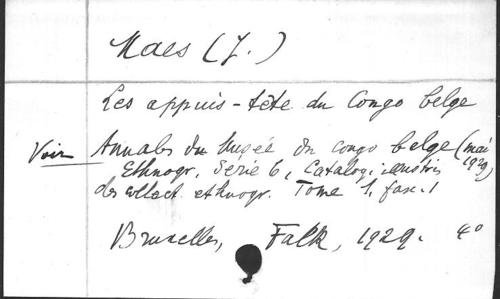 Maes (J.)
Les appuis-tête du Congo belge
Voir Annales du Musée du Congo belge (mai 1929)
Ethnogr. Série 6, Catalog. illustrés
des collect. ethnogr. Tome 1, fasc. 1
Bruxelles, Falk, 1929. 4°